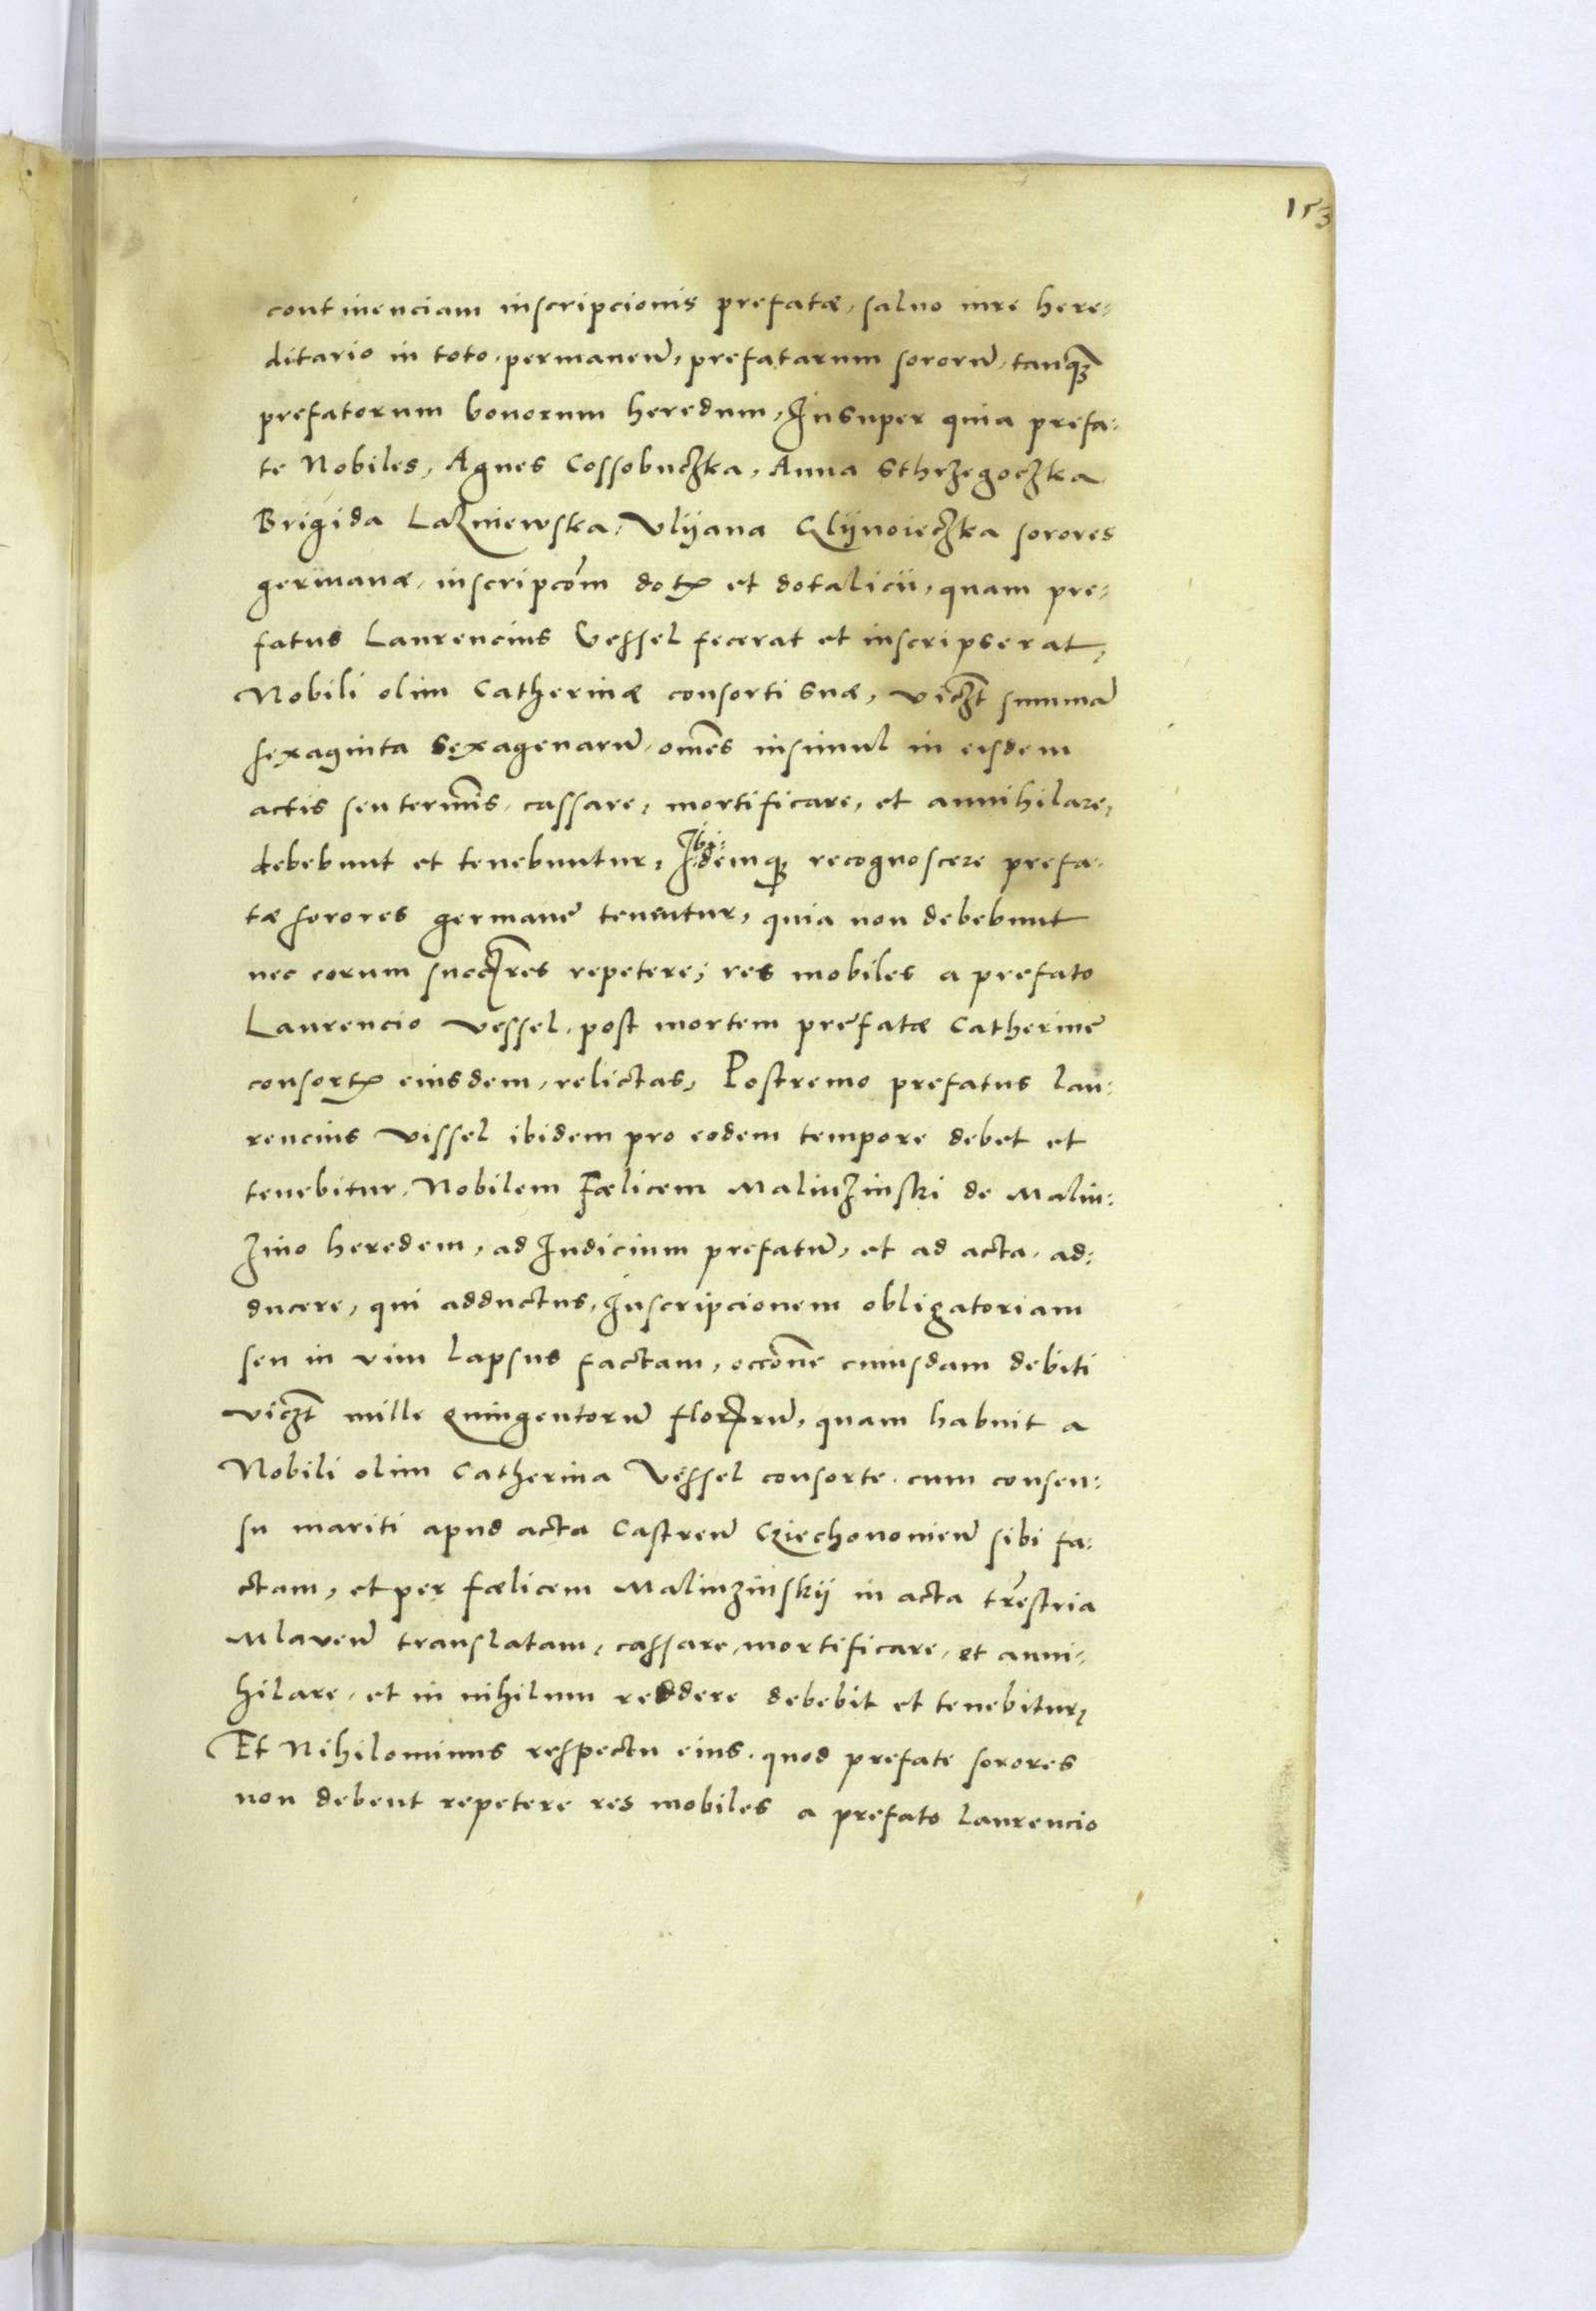 153
continenciam inscripcionis prefatæ, saluo iure here:
ditario in toto, permanen̄, prefatarum sororū, tanq̄ꝫ
prefatorum bonorum heredum, Insuper quia prefa:
te Nobiles, Agnes Cossobuczka, Anna Sthrzegoczka
Brigida Lazniewska, Vlijana Glijnoieczka sorores
germanæ, inscripcōm dotꝭ et dotalicii, quam pre:
fatus Laurencius Vessel fecerat et inscripserat,
Nobili olim Catherinæ consorti suæ, viczt summā
sexaginta sexagenarū, om̄es insimul in eisdem
actis seu term̄is, cassare, mortificare, et annihilare,
debebunt et tenebuntur, Ibi:demqꝫ recognoscere prefa:
tæ sorores germane tenentur, quia non debebunt
nec eorum succ̄res repetere, res mobiles a prefato
Laurencio Vessel, post mortem prefatæ Catherine
consortꝭ eiusdem, relictas, Postremo prefatus Lau:
rencius Vissel ibidem pro eodem tempore debet et
tenebitur, Nobilem Fælicem Malinzinski de Malin:
zino heredem, ad Iudicium prefatū, et ad acta, ad:
ducere, qui adductus, Inscripcionem obligatoriam
seu in vim lapsus factam, occōne cuiusdam debiti
viczt mille quingentorū florꝫrū, quam habuit a
Nobili olim Catherina Vessel consorte, cum consen:
su mariti apud acta Castren̄ Cziechonouien̄ sibi fa:
ctam, et per Fælicem Malinzinskij in acta tr̄estria
Mlauen̄ translatam, cassare, mortificare, et anni:
hilare, et in nihilum reddere debebit et tenebitur,
Et Nihilominus respectu eius, quod prefate sorores
non debent repetere res mobiles a prefato Laurencio